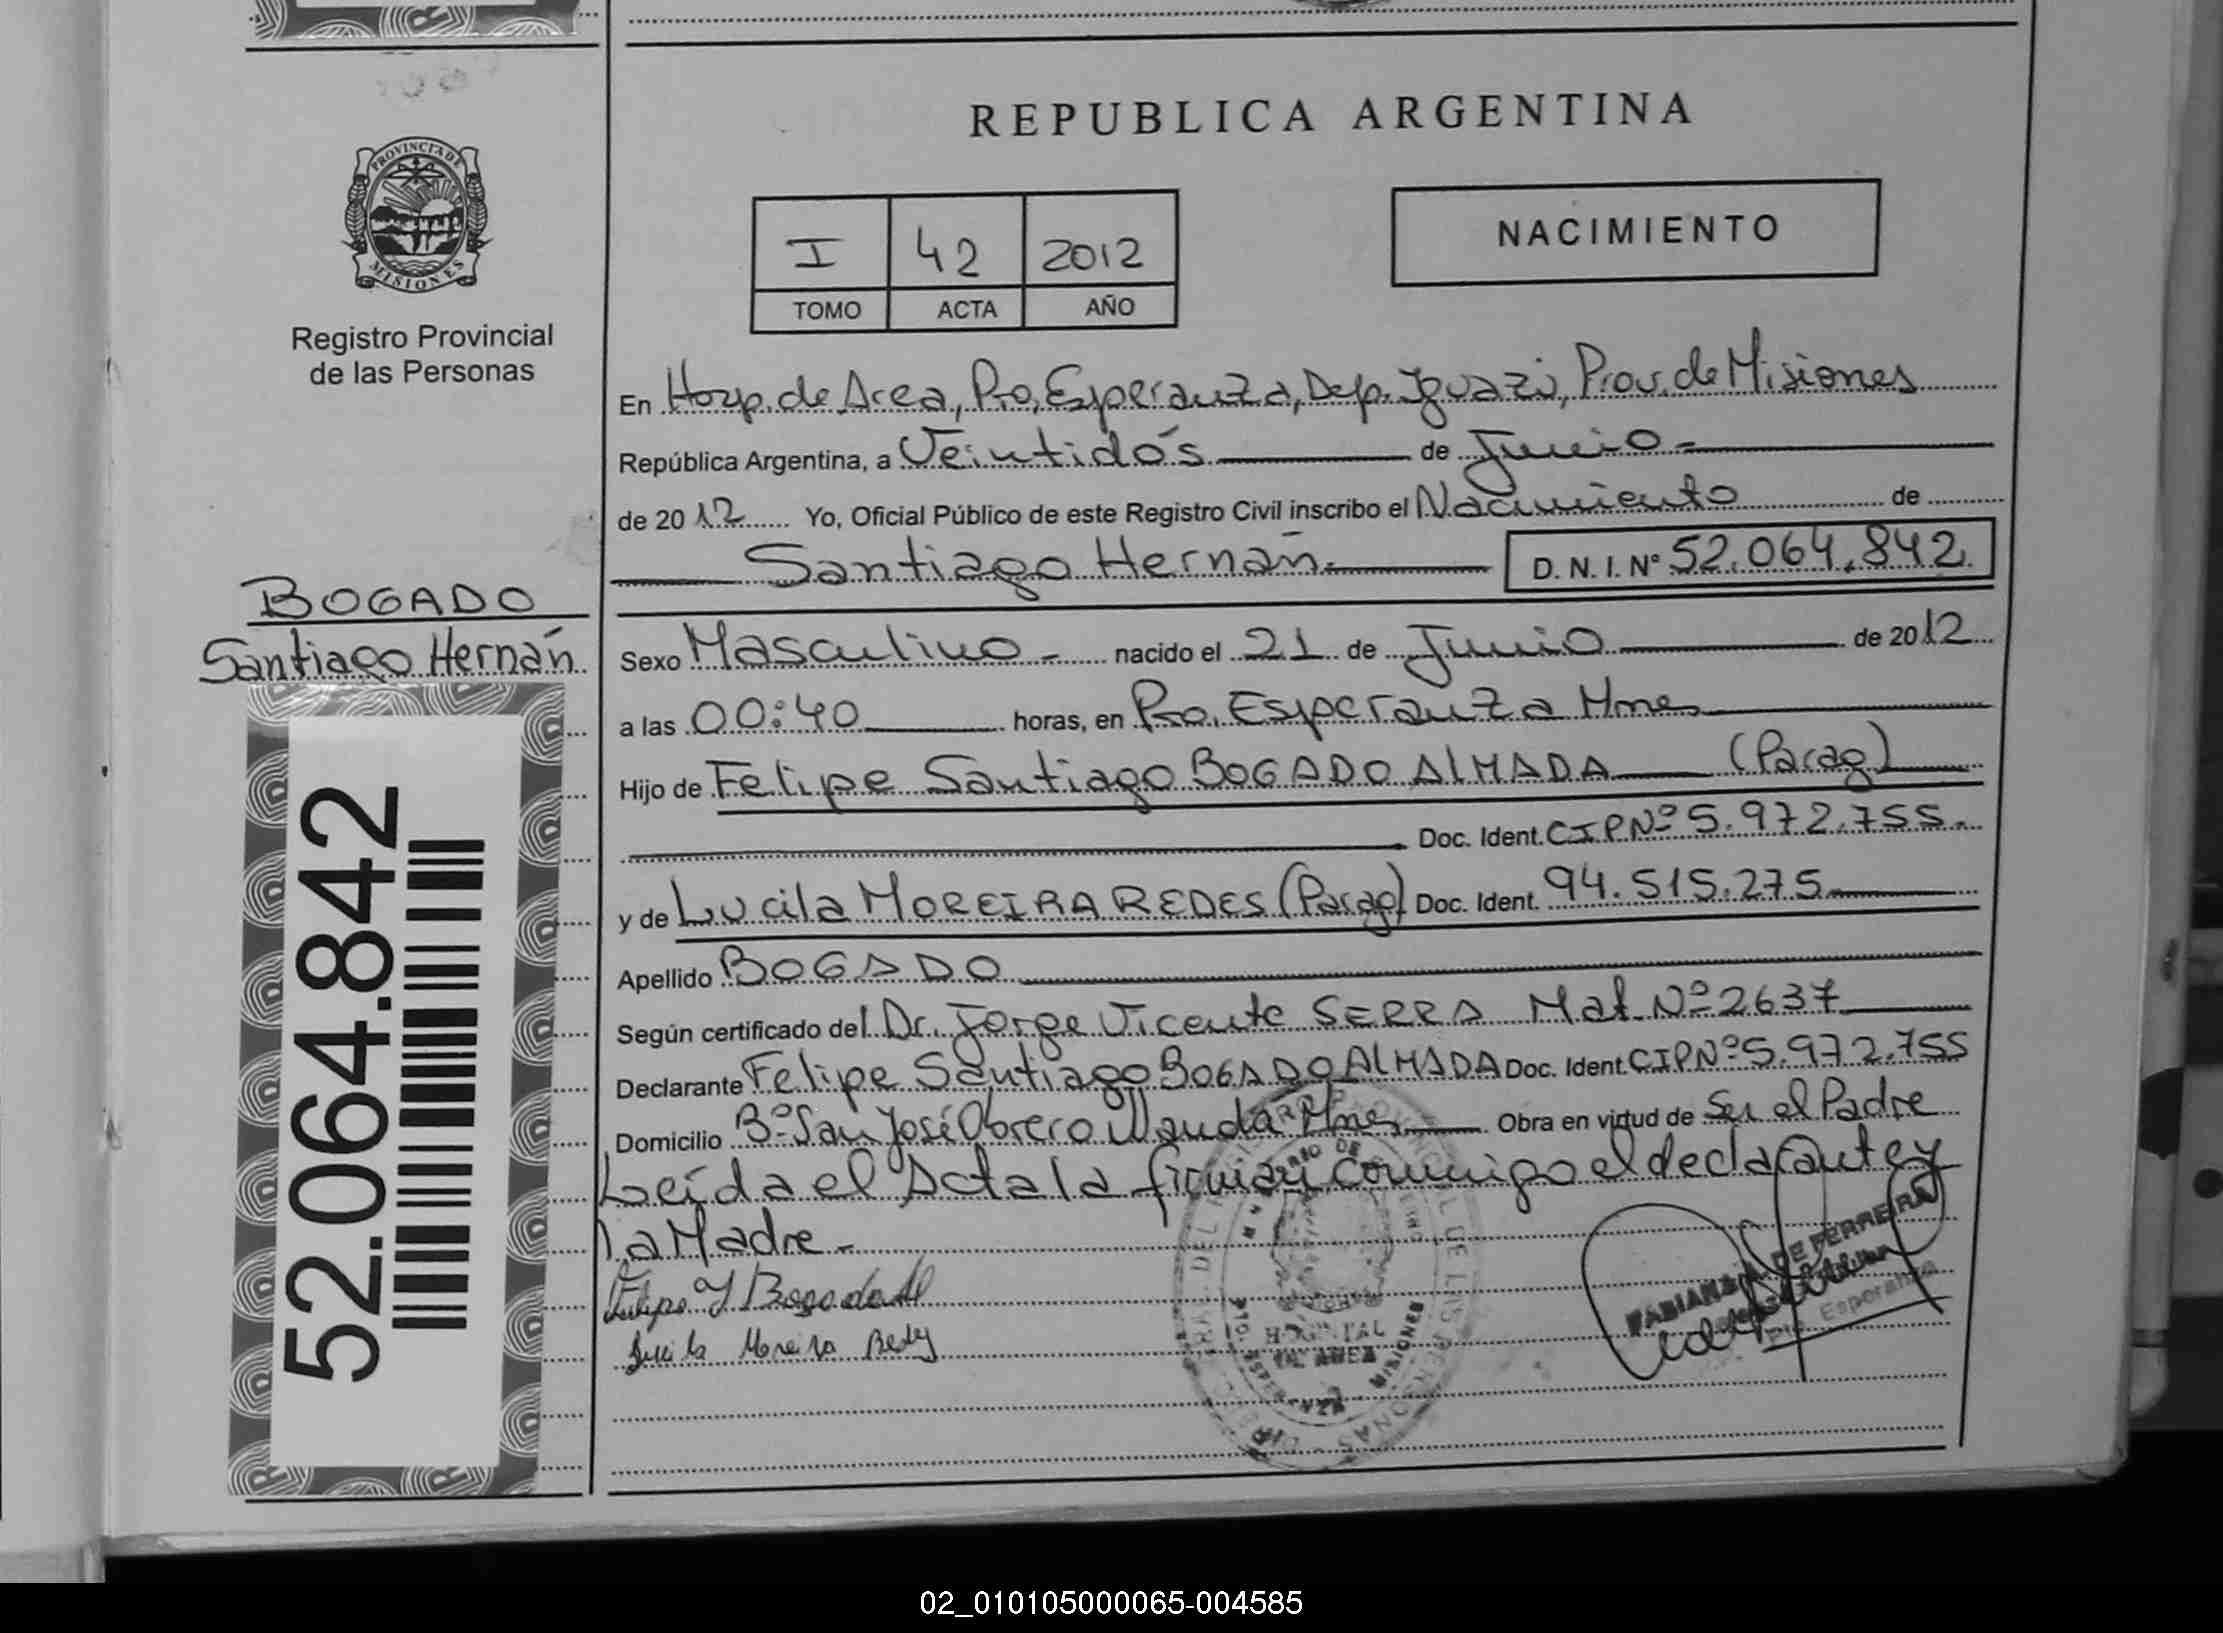 REPUBLICA ARGENTINA
PROVINCIA DE
MISIONES
Registro Provincial
de las Personas
I 42 2012
TOMO ACTA AÑO
NACIMIENTO
En Hosp. de Area, Pto. Esperanza, Dep. Iguazú, Prov. de Misiones
República Argentina, a Veintidós de Junio
de 2012 Yo, Oficial Público de este Registro Civil inscribo el Nacimiento de
Santiago Hernán D. N. I. Nº 52.064.842
BOGADO
Santiago Hernán
52.064.842
Sexo Masculino nacido el 21 de Junio de 2012
a las 00:40 horas, en Pto. Esperanza Mnes
Hijo de Felipe Santiago BOGADO AlMADA (Parag)
Doc. Ident. CIPNº 5.972.755.
y de Lucila MOREIRA REDES (Parag) Doc. Ident. 94.515.275
Apellido BOGADO
Según certificado del Dr. Jorge Vicente SERRA Mat Nº 2637
Declarante Felipe Santiago BOGADO AlMADA Doc. Ident CIPNº 5.972.755
Domicilio Bº San José Obrero Wanda Mnes Obra en virtud de Ser el Padre
Leída el Acta la firman conmigo el declarante y
la Madre
Lucila Moreira Redes
HOSPITAL
DE AREA
MISIONES
DE FERREIRA
Pto Esperanza
02_010105000065-004585